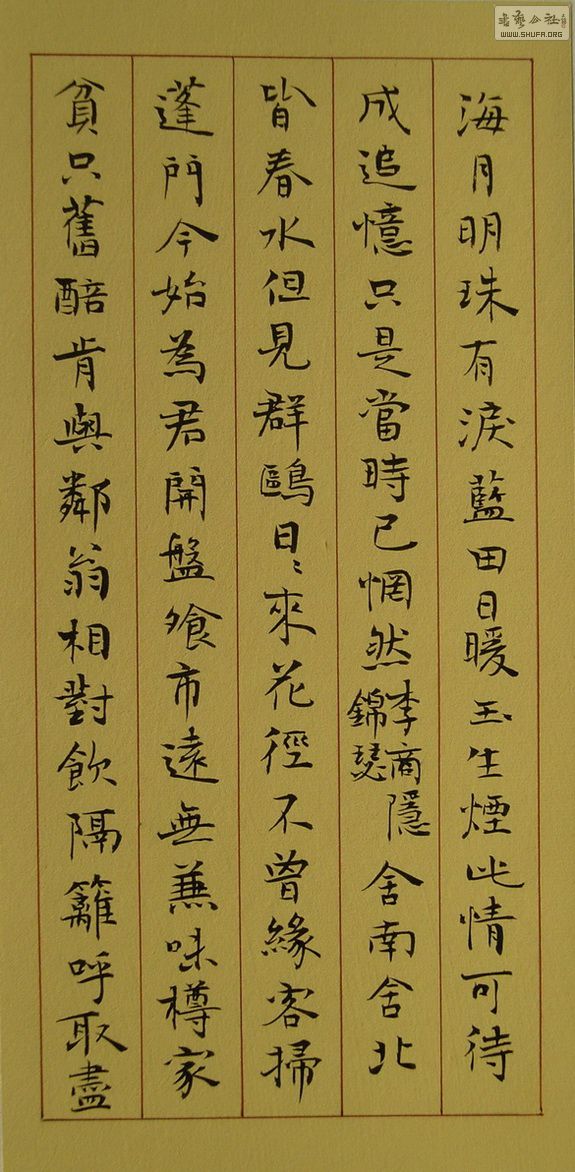 海月明珠有淚藍田日暖玉生煙此情可待
成追憶只是當時已惘然李商隱錦瑟舍南舍北
皆春水但見群鷗日〻來花徑不曾緣客掃
蓬門今始為君開盤飧市遠無兼味樽家
貧只舊醅肯與鄰翁相對飲隔籬呼取盡
書藝公社
WWW.SHUFA.ORG